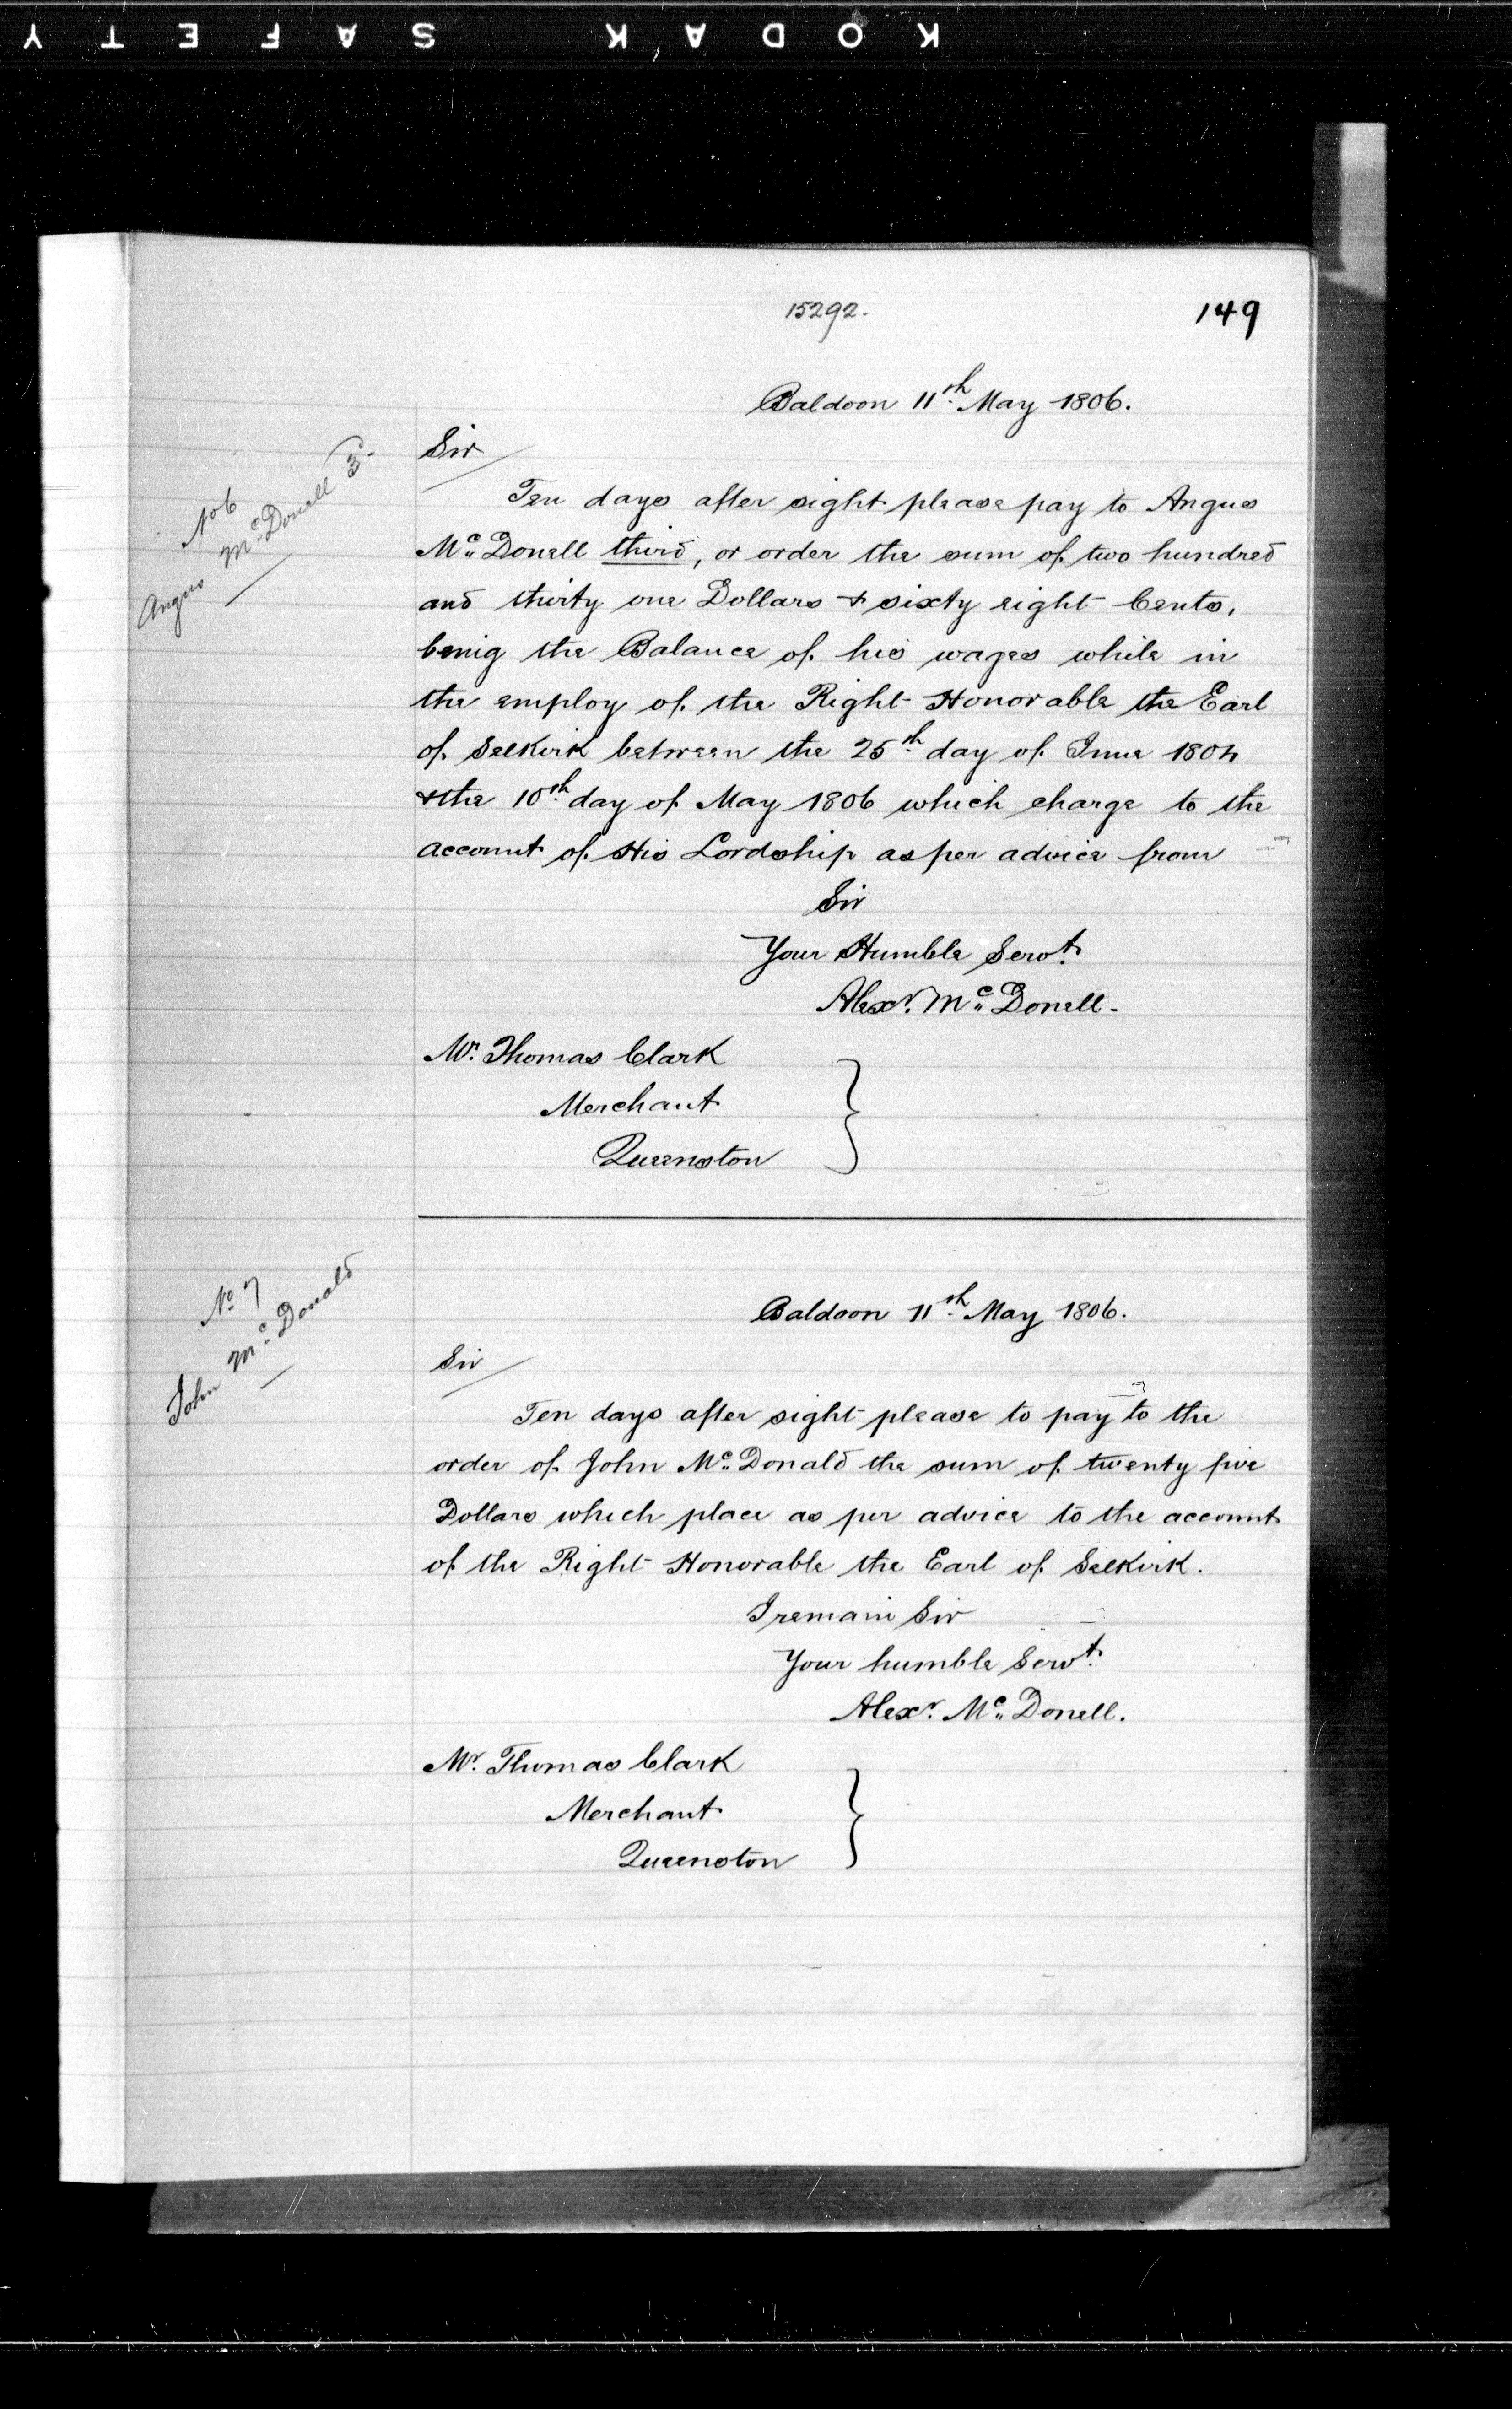 KODAK SAFETY
15292.
149
Baldoon 11th May 1806.
Sir
No 6
Angus McDonell 3d
Ten days after sight please pay to Angus
Mc Donell third, or order the sum of two hundred
and thirty one Dollars & sixty eight Cents,
being the Balance of his wages while in
the employ of the Right Honorable the Earl
of Selkirk between the 25th day of June 1804
& the 10th day of May 1806 which charge to the
account of His Lordship as per advice from
Sir
Your Humble Servt.
Alexr. Mc Donell.
Mr. Thomas Clark
Merchant
Queenston
Baldoon 11th May 1806.
No 7
John Mc Donald
Sir
Ten days after sight please to pay to the
order of John Mc Donald the sum of twenty five
Dollars which place as per advice to the account
of the Right Honorable the Earl of Selkirk.
I remain Sir
Your humble Servt.
Alexr. Mc Donell.
Mr. Thomas Clark
Merchant
Queenston